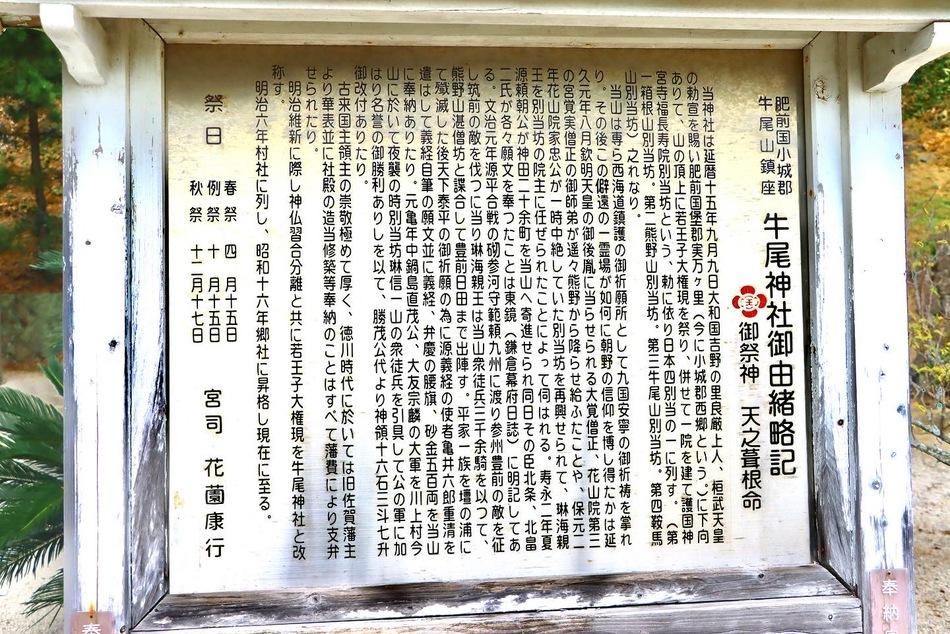 肥前国小城郡
牛尾山鎮座
牛尾神社御由緒略記
御祭神 天之葺根命
当神社は延暦十五年九月九日大和国吉野の里良厳上人、桓武天皇
の勅宣を賜い肥前国堡郡実万ヶ里(今に小城郡西郷という。)に下向
ありて、山の頂上に若王子大権現を祭り、併せて一院を建て護国神
宮寺福長寿院別当坊という、勅に依り日本四別当の一に列す。(第
一箱根山別当坊。第二熊野山別当坊。第三牛尾山別当坊。第四鞍馬
山別当坊)之れなり。
当山は専ら西海道鎮護の御祈願所として九国安寧の御祈祷を掌れ
り。その後この僻遠の一霊場が如何に朝野の信仰を博し得たかは延
久元年八月欽明天皇の御後胤に当らせられる大覚僧正、花山院第三
の宮覚実僧正の御師弟が遥々熊野から降らせ給ふたことや、保元二
年花山院家忠公が一時中絶していた別当坊を再興せられて、琳海親
王を別当坊の院主に任ぜられたことによって伺はれる。寿永二年夏
源頼朝公が神田二十余町を当山へ寄進せられ同日その臣北条、北畠
二氏が各々願文を奉つたことは東鏡(鎌倉幕府日誌)に明記してあ
る。文治元年源平合戦の砌参河守範頼九州に渡り参州豊前の敵を征
し筑前の敵を伐つに当り琳海親王は当山衆徒兵三千余騎を以つて、
熊野山湛僧坊と諜合して豊前日田まで出陣す。平家一族を壇の浦に
て殲滅した後天下泰平の御祈願の為に源義経の使者亀井六郎重清を
遣はして義経自筆の願文並に義経、弁慶の腰旗、砂金五百両を当山
に奉納ありたり。元亀年中鍋島直茂公、大友宗麟の大軍を川上村今
山に於いて夜襲の時別当坊琳信一山の衆徒兵を引具して公の軍に加
はり名誉の御勝利ありしを以て、勝茂公代より神領十六石三斗七升
御改付ありたり。
古来国主領主の崇敬極めて厚く、徳川時代に於いては旧佐賀藩主
より華表並に社殿の造当修築等奉納のことはすべて藩費により支弁
せられたり。
明治維新に際し神仏習合分離と共に若王子大権現を牛尾神社と改
称す。
明治六年村社に列し、昭和十六年郷社に昇格し現在に至る。
祭日
春祭 四月十五日
例祭 十月十五日
秋祭 十二月十七日
宮司 花薗康行
奉納
奉